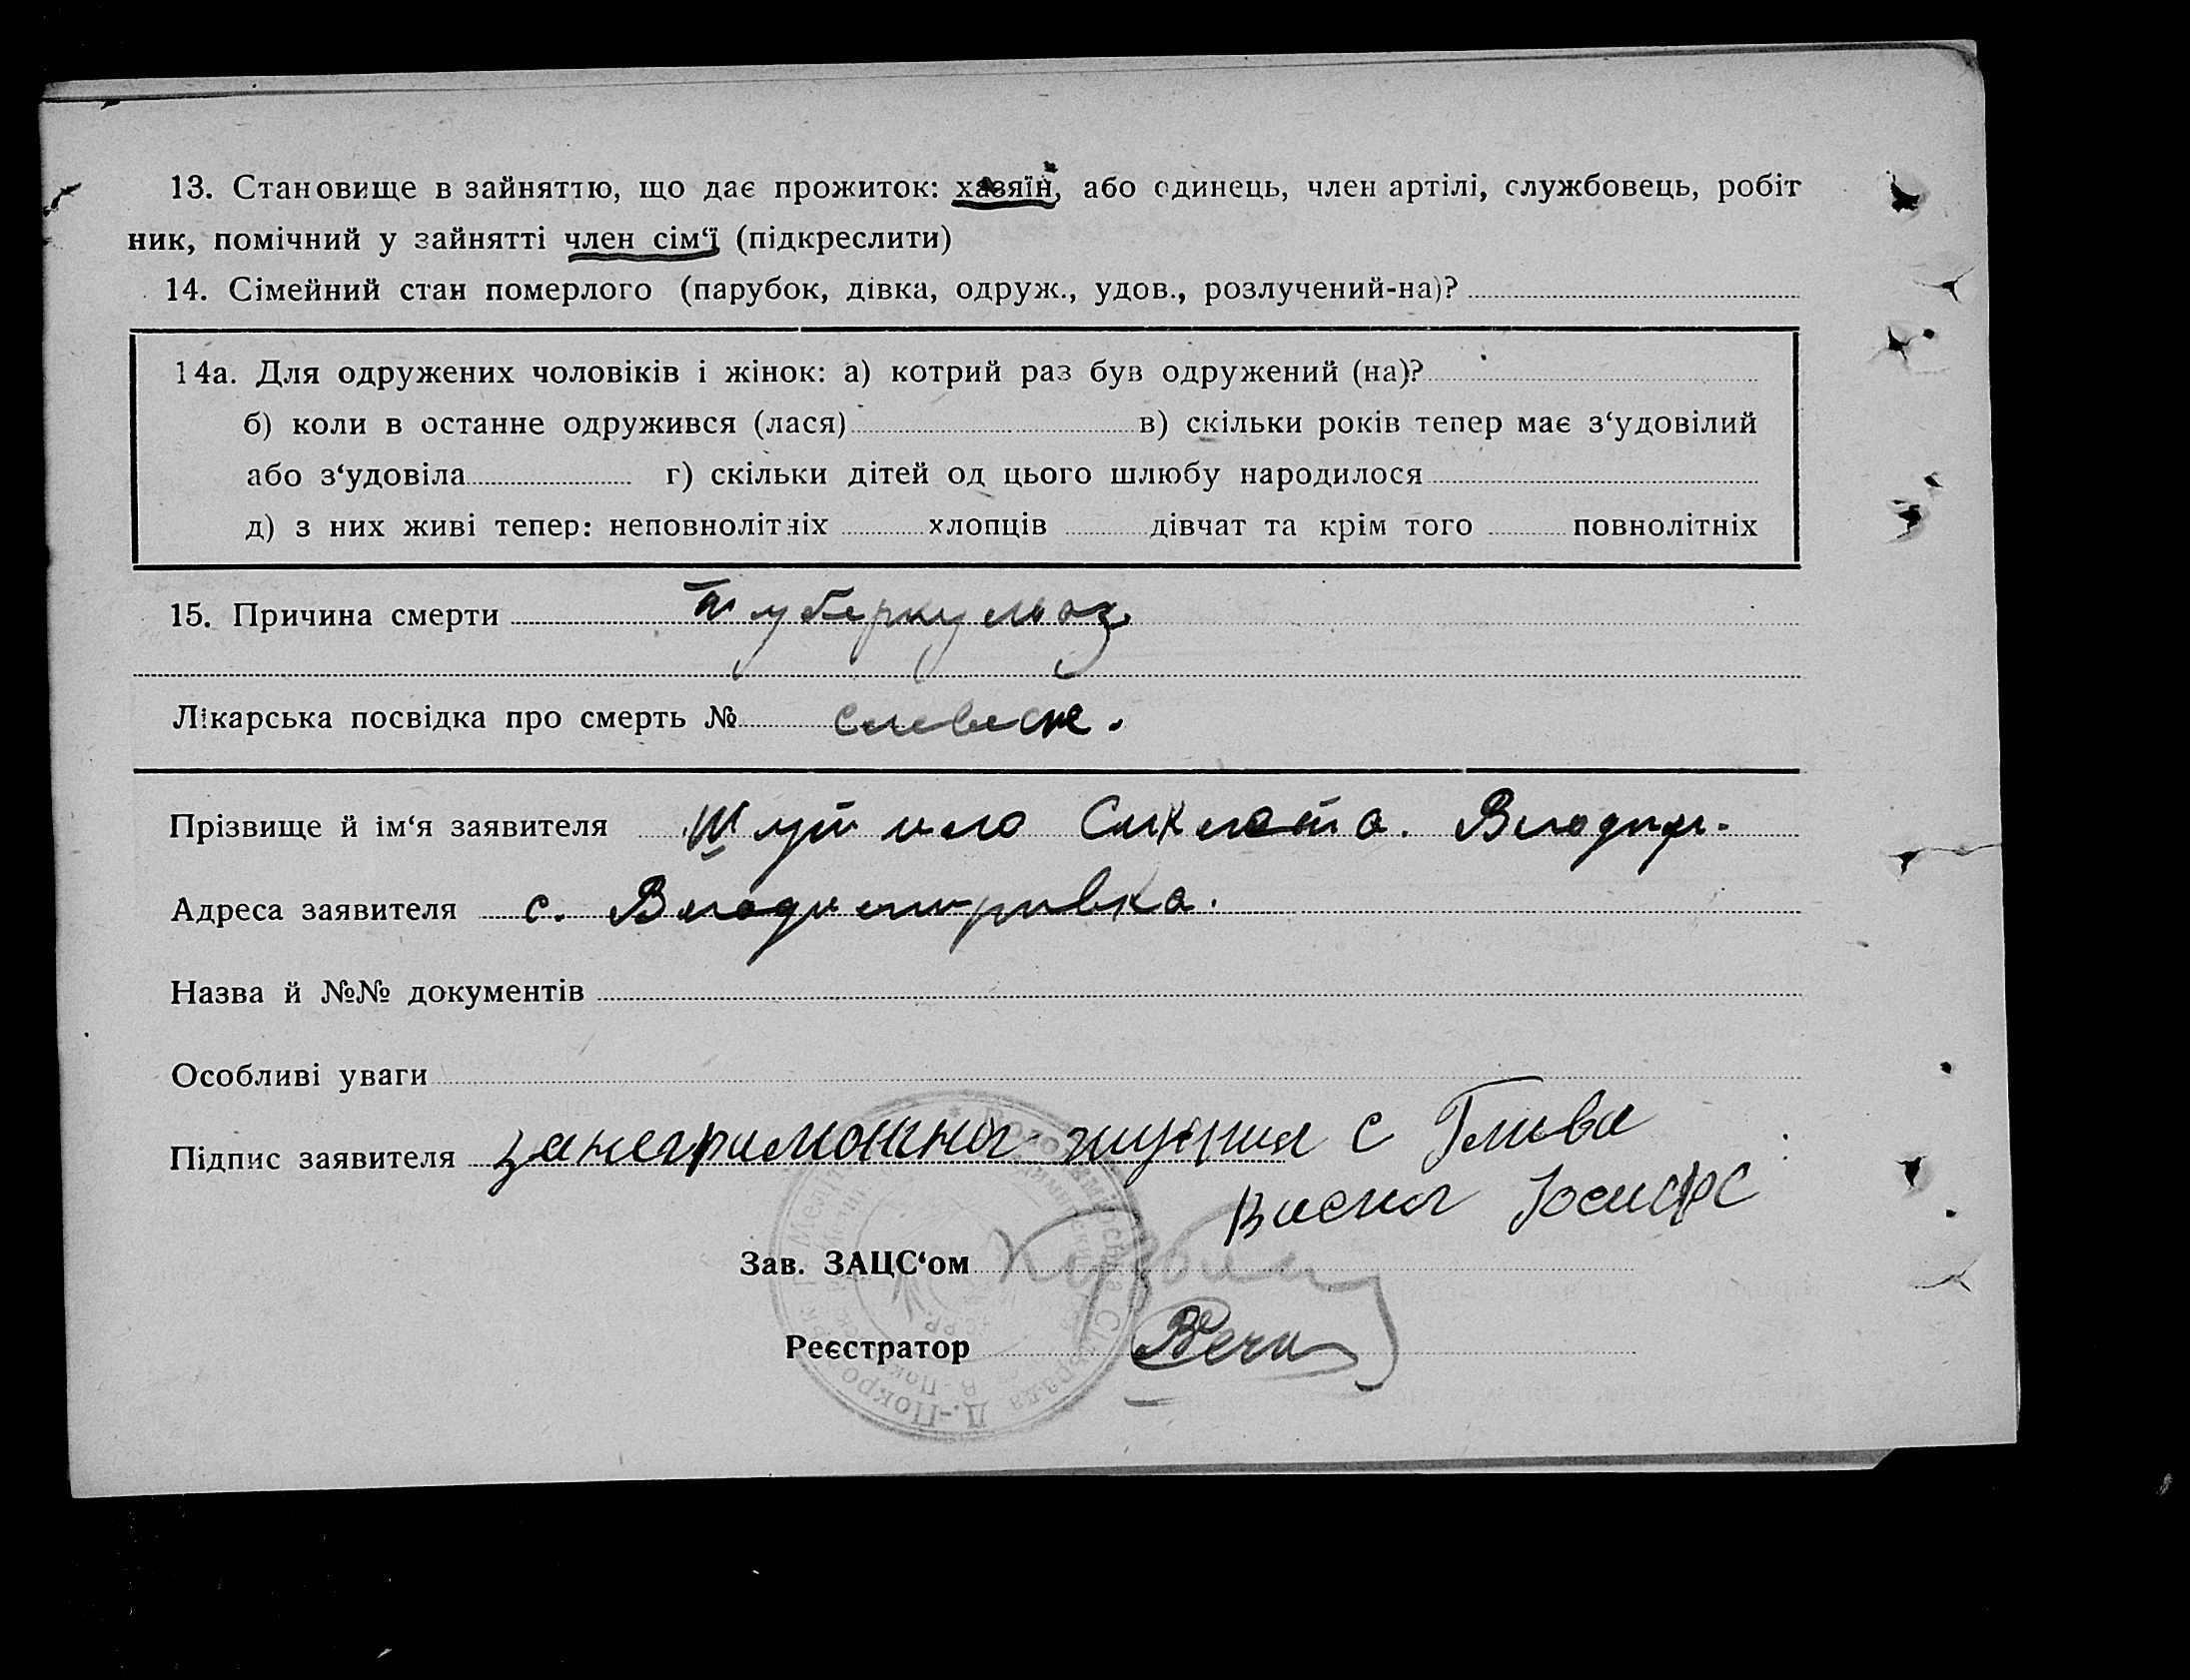 13. Становище в зайняттю, що дає прожиток: хазяїн, або одинець, член артілі, службовець, робіт
ник, помічний у зайнятті член сім‘ї (підкреслити)
14. Сімейний стан померлого (парубок, дівка, одруж., удов., розлучений-на)?
14а. Для одружених чоловіків і жінок: а) котрий раз був одружений (на)?
б) коли в останне одружився (лася) в) скільки років тепер має з‘удовілий
або з‘удовіла г) скільки дітей од цього шлюбу народилося
д) з них живі тепер: неповнолітніх хлопців дівчат та крім того повнолітніх
15. Причина смерти туберкульоз
Лікарська посвідка про смерть №
Прізвище й ім‘я заявителя Володим.
Адреса заявителя с. Володимирівка.
Назва й №№ документів
Особливі уваги
Підпис заявителя с Глива
Зав. ЗАЦС‘ом
Реєстратор